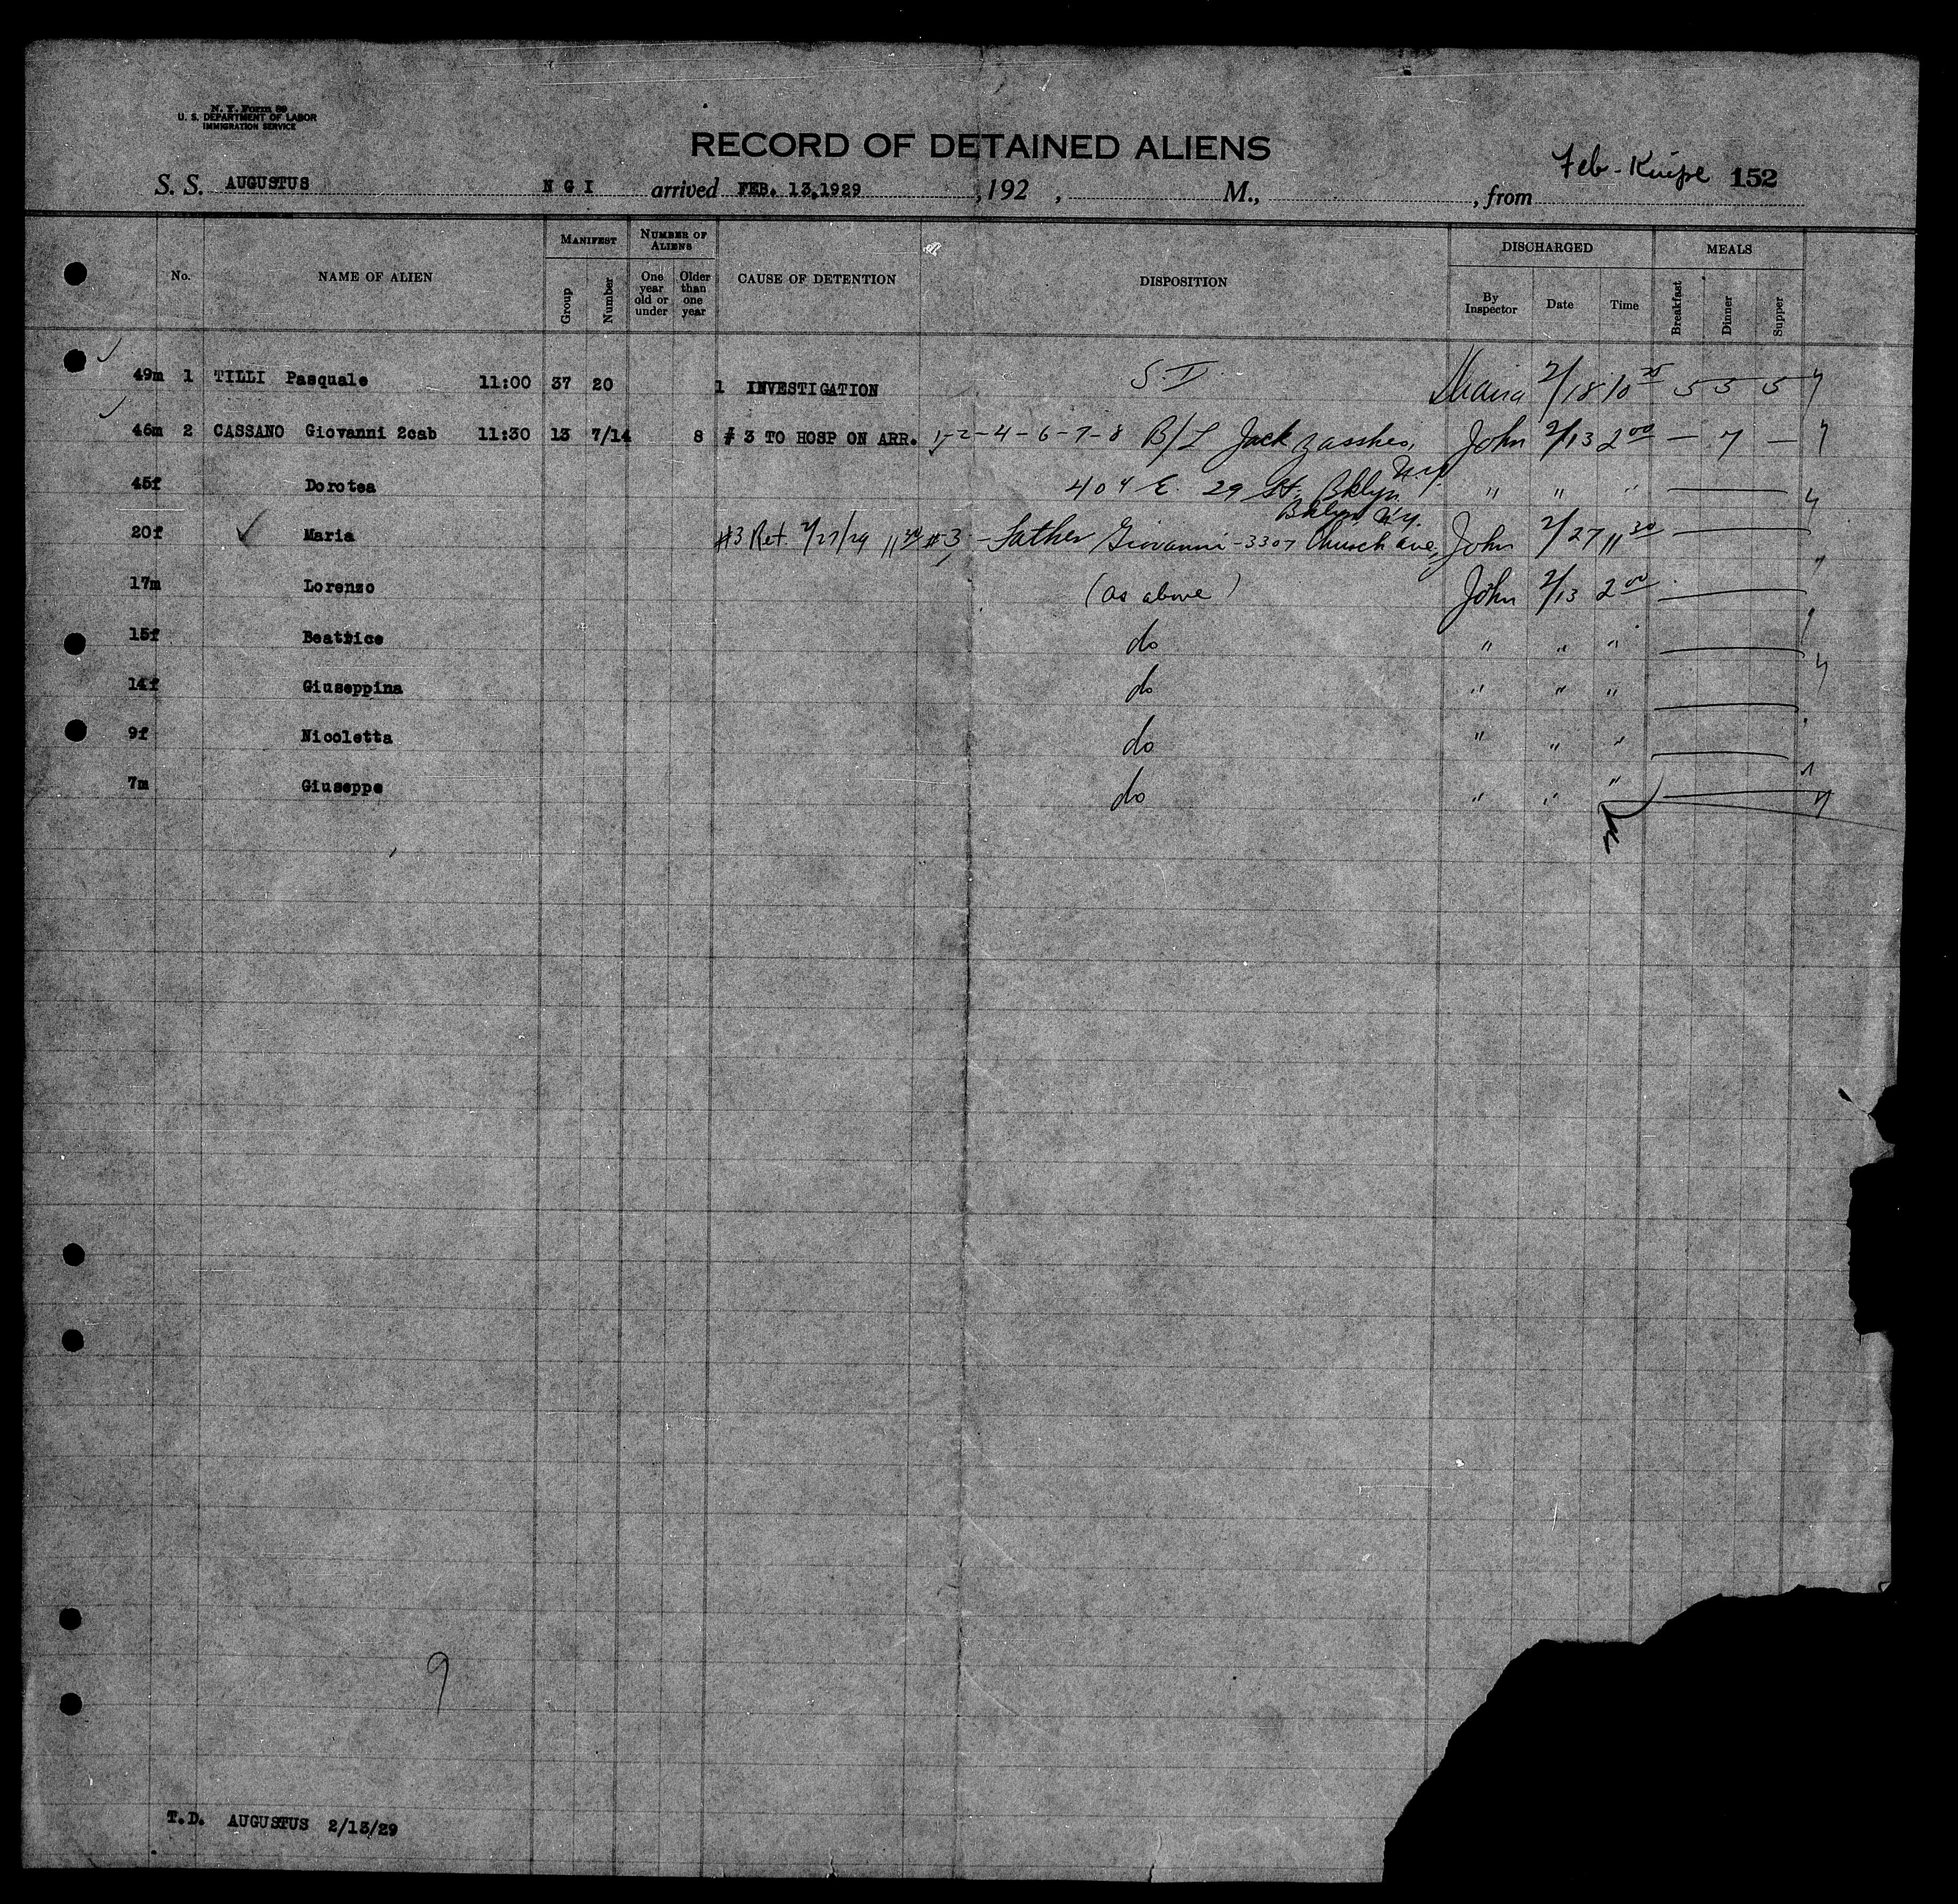 N. Y. Form 89
U. S. DEPARTMENT OF LABOR
IMMIGRATION SERVICE
RECORD OF DETAINED ALIENS
Feb - 152
S. S. AUGUSTUS N G I arrived FEB. 13,1929 , 192 , M., , from
No. NAME OF ALIEN MANIFEST Group Number NUMBER OF ALIENS One year old or under Older than one year CAUSE OF DETENTION DISPOSITION DISCHARGED By Inspector Date Time MEALS Breakfast Dinner Supper
49m 1 TILLI Pasquale 11:00 37 20 1 INVESTIGATION S.I. 2/18 10 25 5 5 5
46m 2 CASSANO Giovanni 2cab 11:30 13 7/14 8 # 3 TO HOSP ON ARR. 1-2-4-6-7-8 B/L Jack John 2/13 2 00 — 7 —
45f Dorotea 404 E. 29 St. Bklyn N.Y. " " "
20f Maria #3 Ret. 2/27/29 #3 - Father Giovanni - 3307 Church ave, Bklyn N.Y. John 2/27 11 30
17m Lorenzo (as above) John 2/13 2 00
15f Beatrice do " " "
14f Giuseppina do " " "
9f Nicoletta do " " "
7m Giuseppe do " " "
9
T.D. AUGUSTUS 2/13/29